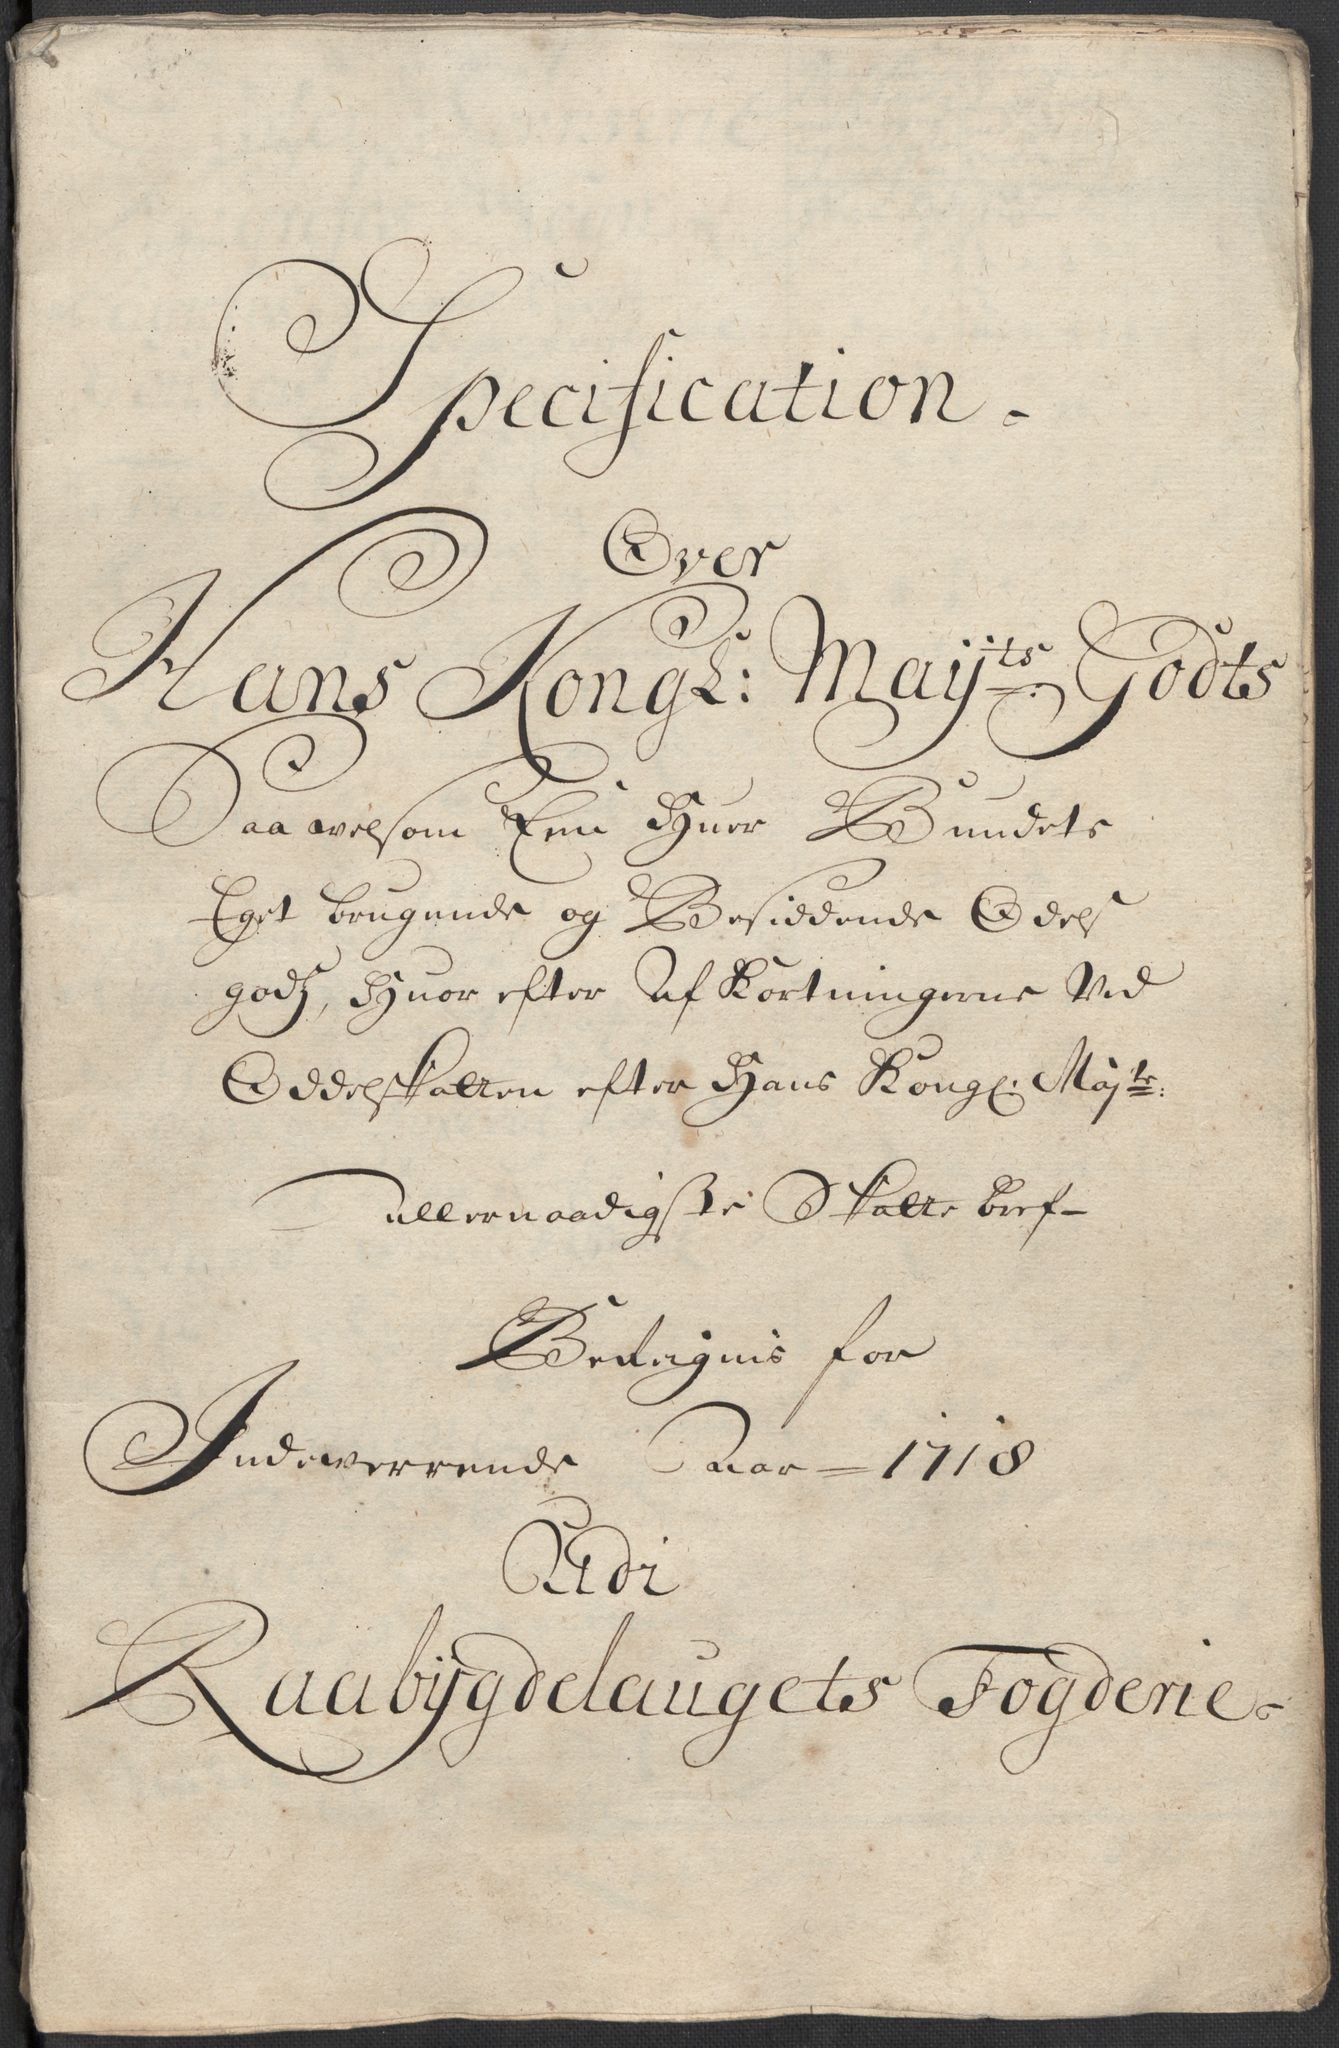 Specification.
Over
Hans Kongl: Mayts Godts
Saavelsom Een Huer Bundets
Eget brugende og Besiddende Odels
godz, Huor efter Af Kortningerne Ved
Oddelskatten efter Hans Kongl: Mayts:
allernaadigste Skatte bref-
Befeignis for
Indeverrende Aar = 1718
Udi
Raabijgdelaugets Fogderie.